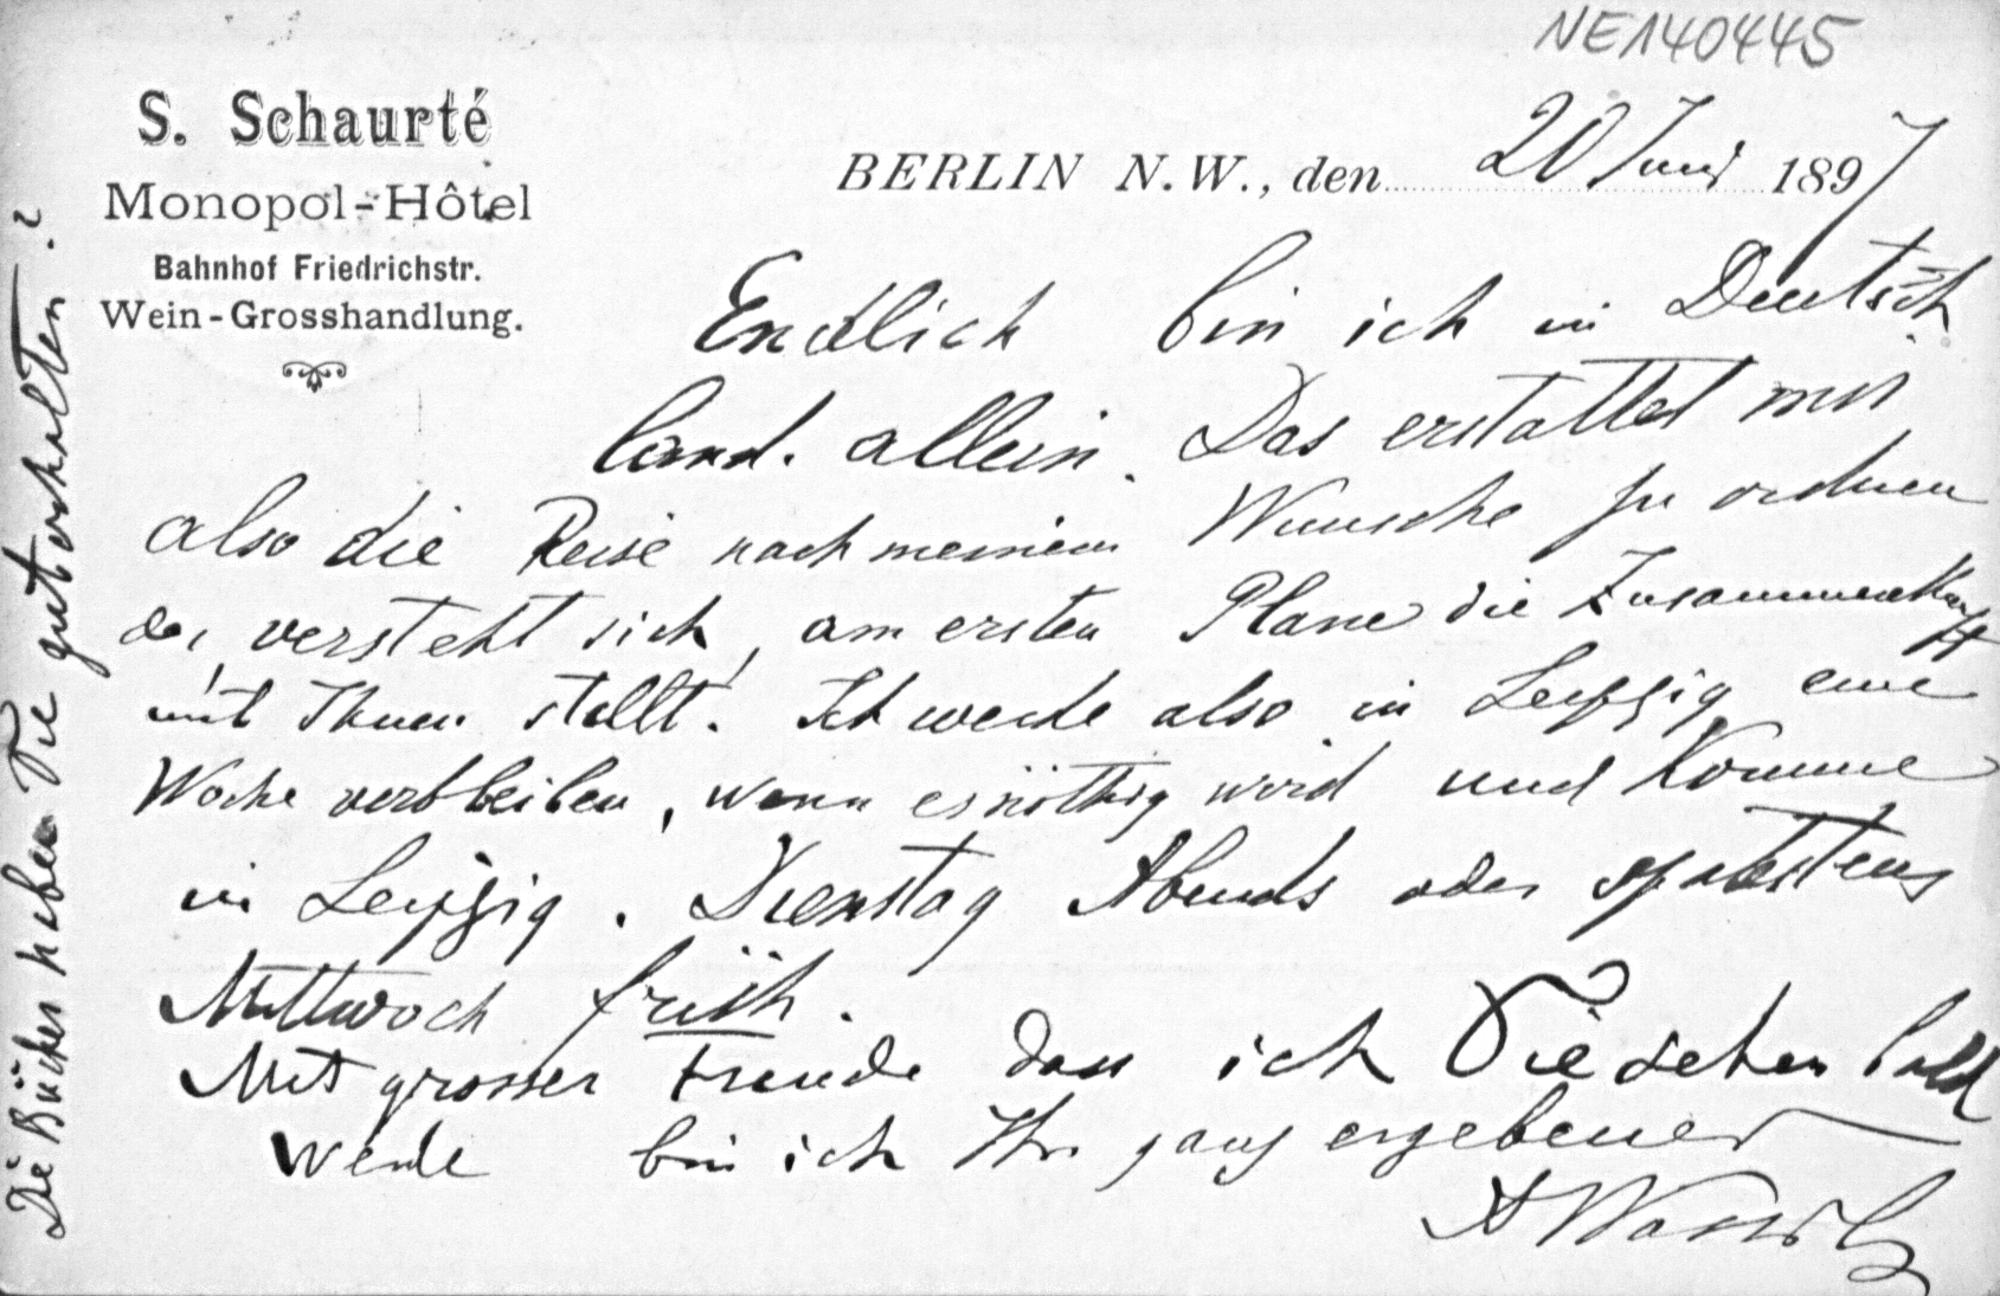 NE140445
S. Schaurté
Monopol-Hôtel
Bahnhof Friedrichstr.
Wein-Grosshandlung.
BERLIN N.W., den 20 Juni 1897
Endlich bin ich in Deutsch
land. allein. Das erstattet mir
also die Reise nach meinem Wunsche zu ordnen
der, versteht sich, am ersten Plane die Zusammenkunft
mit Ihnen stellt! Ich werde also in Leipzig eine
Woche verbleiben, wenn es nöthig wird und komme
in Leipzig. Dienstag Abends oder spätestens
Mittwoch früh.
Mit grosser Freude dass ich Sie sehen bald
werde bin ich Ihr ganz ergebener
Die Bücher haben Sie gut erhalten?